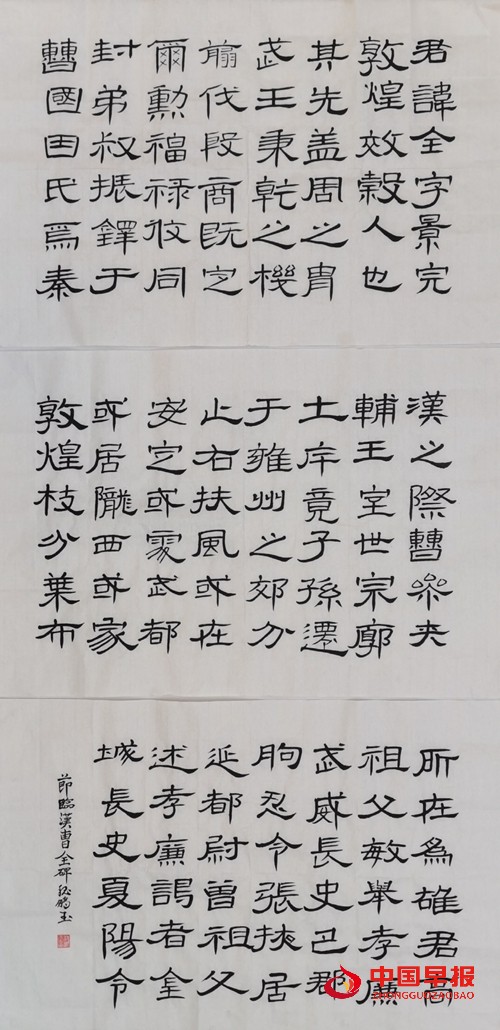 君諱全字景完
敦煌效穀人也
其先盖周之胄
武王秉乾之機
翦伐殷商既定
爾勳福禄攸同
封弟叔振鐸于
曹國因氏焉秦
漢之際曹參夾
輔王室世宗廓
土斥竟子孫遷
于雍州之郊分
止右扶風或在
安定或處武都
或居隴西或家
敦煌枝分葉布
所在為雄君高
祖父敏舉孝廉
武威長史巴郡
朐忍令張掖居
延都尉曾祖父
述孝廉謁者金
城長史夏陽令
節臨漢曹全碑
中国早报
ZHONGGUOZAOBAO